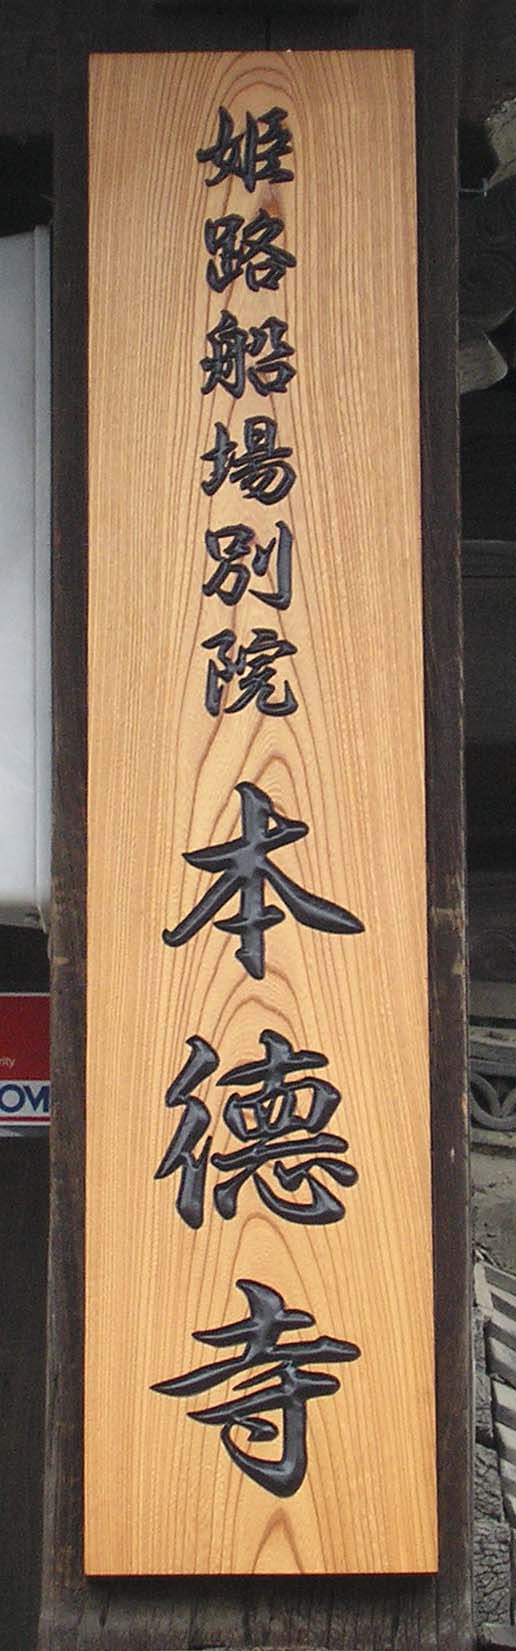 姫路船場別院
本德寺
rity
OM